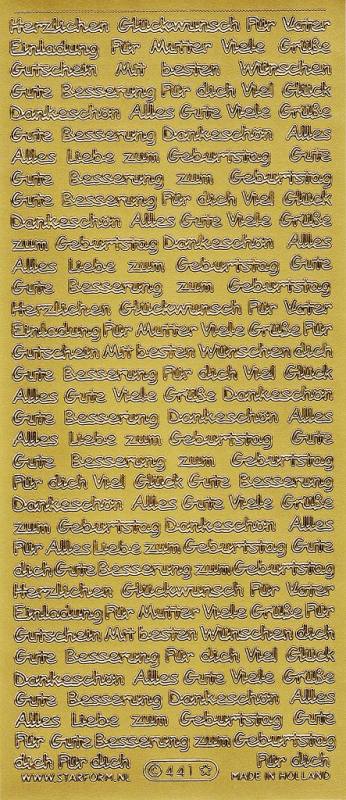 Herzlichen Glückwunsch Für Vater
Einladung Für Mutter Viele Grüße
Gutschein Mit besten Wünschen
Gute Besserung Für dich Viel Glück
Dankeschön Alles Gute Viele Grüße
Gute Besserung Dankeschön Alles
Alles Liebe zum Geburtstag Gute
Gute Besserung zum Geburtstag
Gute Besserung Für dich Viel Glück
Dankeschön Alles Gute Viele Grüße
zum Geburtstag Dankeschön Alles
Alles Liebe zum Geburtstag Gute
Gute Besserung zum Geburtstag
Herzlichen Glückwunsch Für Vater
Einladung Für Mutter Viele Grüße Für
Gutschein Mit besten Wünschen dich
Gute Besserung Für dich Viel Glück
Alles Gute Viele Grüße Dankeschön
Gute Besserung Dankeschön Alles
Alles Liebe zum Geburtstag Gute
Gute Besserung zum Geburtstag
Für dich Viel Glück Gute Besserung
Dankeschön Alles Gute Viele Grüße
zum Geburtstag Dankeschön Alles
Für Alles Liebe zum Geburtstag Gute
dich Gute Besserung zum Geburtstag
Herzlichen Glückwunsch Für Vater
Einladung Für Mutter Viele Grüße Für
Gutschein Mit besten Wünschen dich
Gute Besserung Für dich Viel Glück
Dankeschön Alles Gute Viele Grüße
Gute Besserung Dankeschön Alles
Alles Liebe zum Geburtstag Gute
Für Gute Besserung zum Geburtstag
dich Für dich Für dich
WWW.STARFORM.NL © 441 ☆ MADE IN HOLLAND